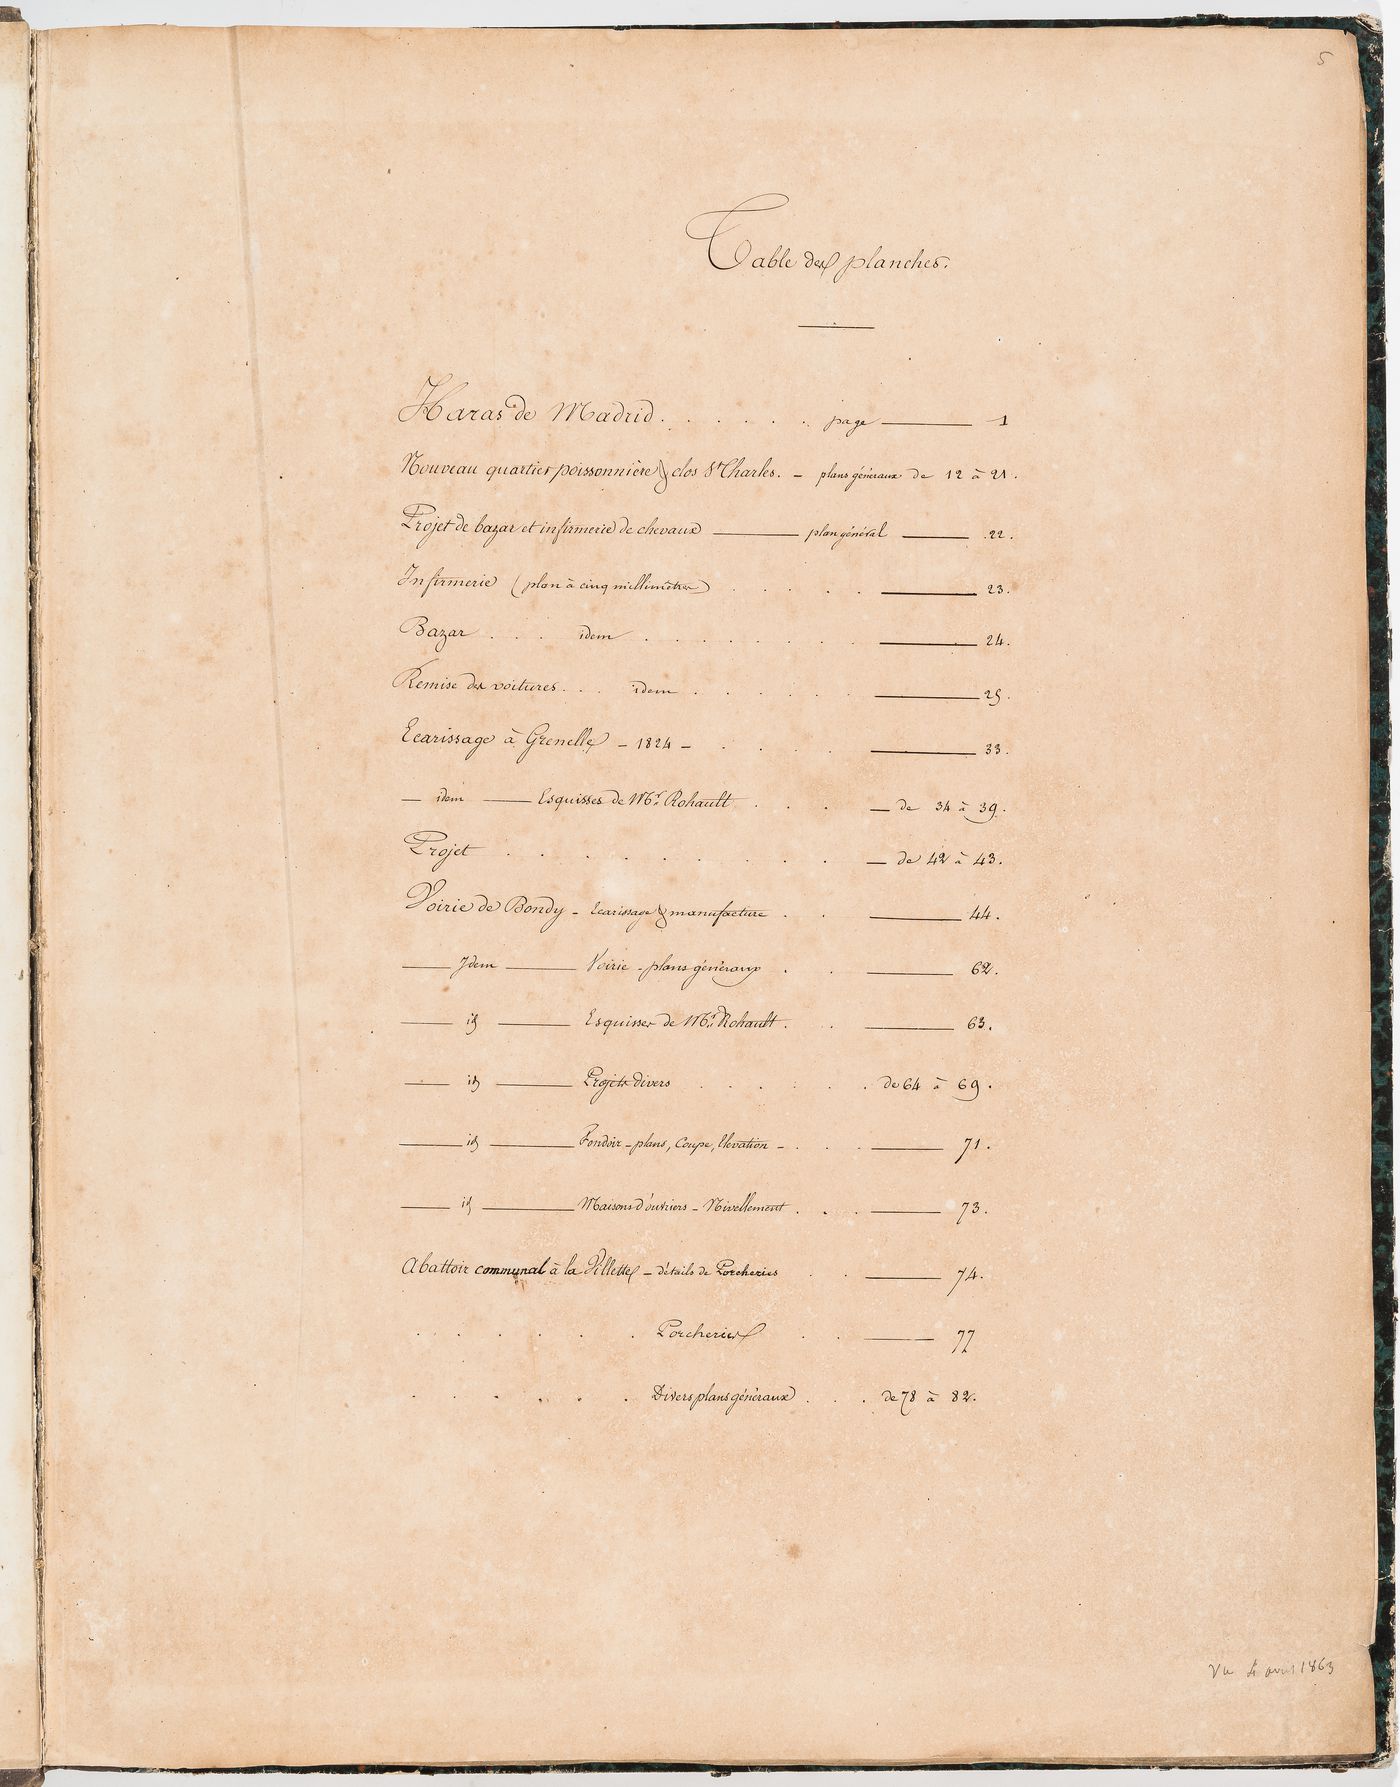 5
Table des planches.
Haras de Madrid. . . . . . . page — 1
Nouveau quartier poissonnière & clos St Charles. – plans généraux de 12 à 21.
Projet de bazar et infirmerie de chevaux — plan général — 22.
Infirmerie (plan à cinq millimètres) . . . . — 23.
Bazar . . . idem . . . . . . . — 24.
Remise des voitures . . . idem . . . . . — 25.
Ecarissage à Grenelle – 1824 – . . . . — 33.
— idem — Esquisses de Mr. Rohault . . . — de 34 à 39.
Projet . . . . . . . . — de 42 à 43.
Voirie de Bondy – Ecarissage & manufacture . . — 44.
— Idem — Voirie – plans généraux . . — 62.
— id — Esquisses de Mr. Rohault . . — 63.
— id — Projets divers . . . . . . de 64 à 69.
— id — Fondoir – plans, Coupe, Elevation – . . . — 71.
— id — Maisons d'ouvriers – Nivellement . . . — 73.
Abattoir communal à la Villette – détails de Porcheries . . — 74.
. . . . . . Porcheries . . — 77
. . . . . . Divers plans généraux . . . de 78 à 82.
Vu 4 avril 1863